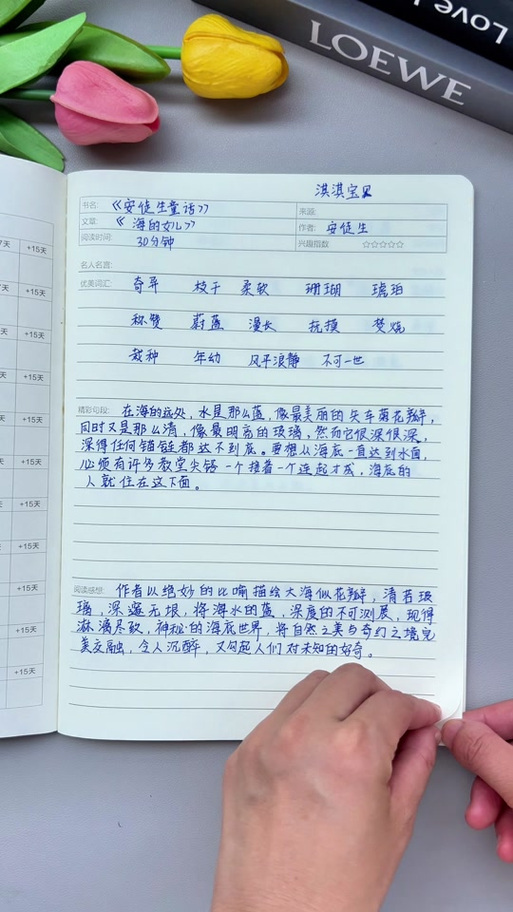 Love
LOEWE
淇淇宝贝
书名: 《安徒生童话》 来源:
文章: 《海的女儿》 作者: 安徒生
阅读时间: 30分钟 兴趣指数 ☆☆☆☆☆
名人名言:
优美词汇: 奇异 枝子 柔软 珊瑚 琥珀
称赞 蔚蓝 漫长 抚摸 焚烧
栽种 年幼 风平浪静 不可一世
精彩句段: 在海的远处,水是那么蓝,像最美丽的矢车菊花瓣,
同时又是那么清,像最明亮的玻璃,然而它很深很深,
深得任何锚链都达不到底。要想从海底一直达到水面,
必须有许多教堂尖塔一个接着一个连起才成,海底的
人就住在这下面。
阅读感想: 作者以绝妙的比喻描绘大海似花瓣,清若玻
璃,深邃无垠,将海水的蓝,深度的不可测展,现得
淋漓尽致,神秘的海底世界,将自然之美与奇幻之境完
美交融,令人沉醉,又勾起人们对未知的好奇。
7天 +15天
+15天
+15天
+15天
+15天
+15天
+15天
+15天
+15天
+15天
+15天